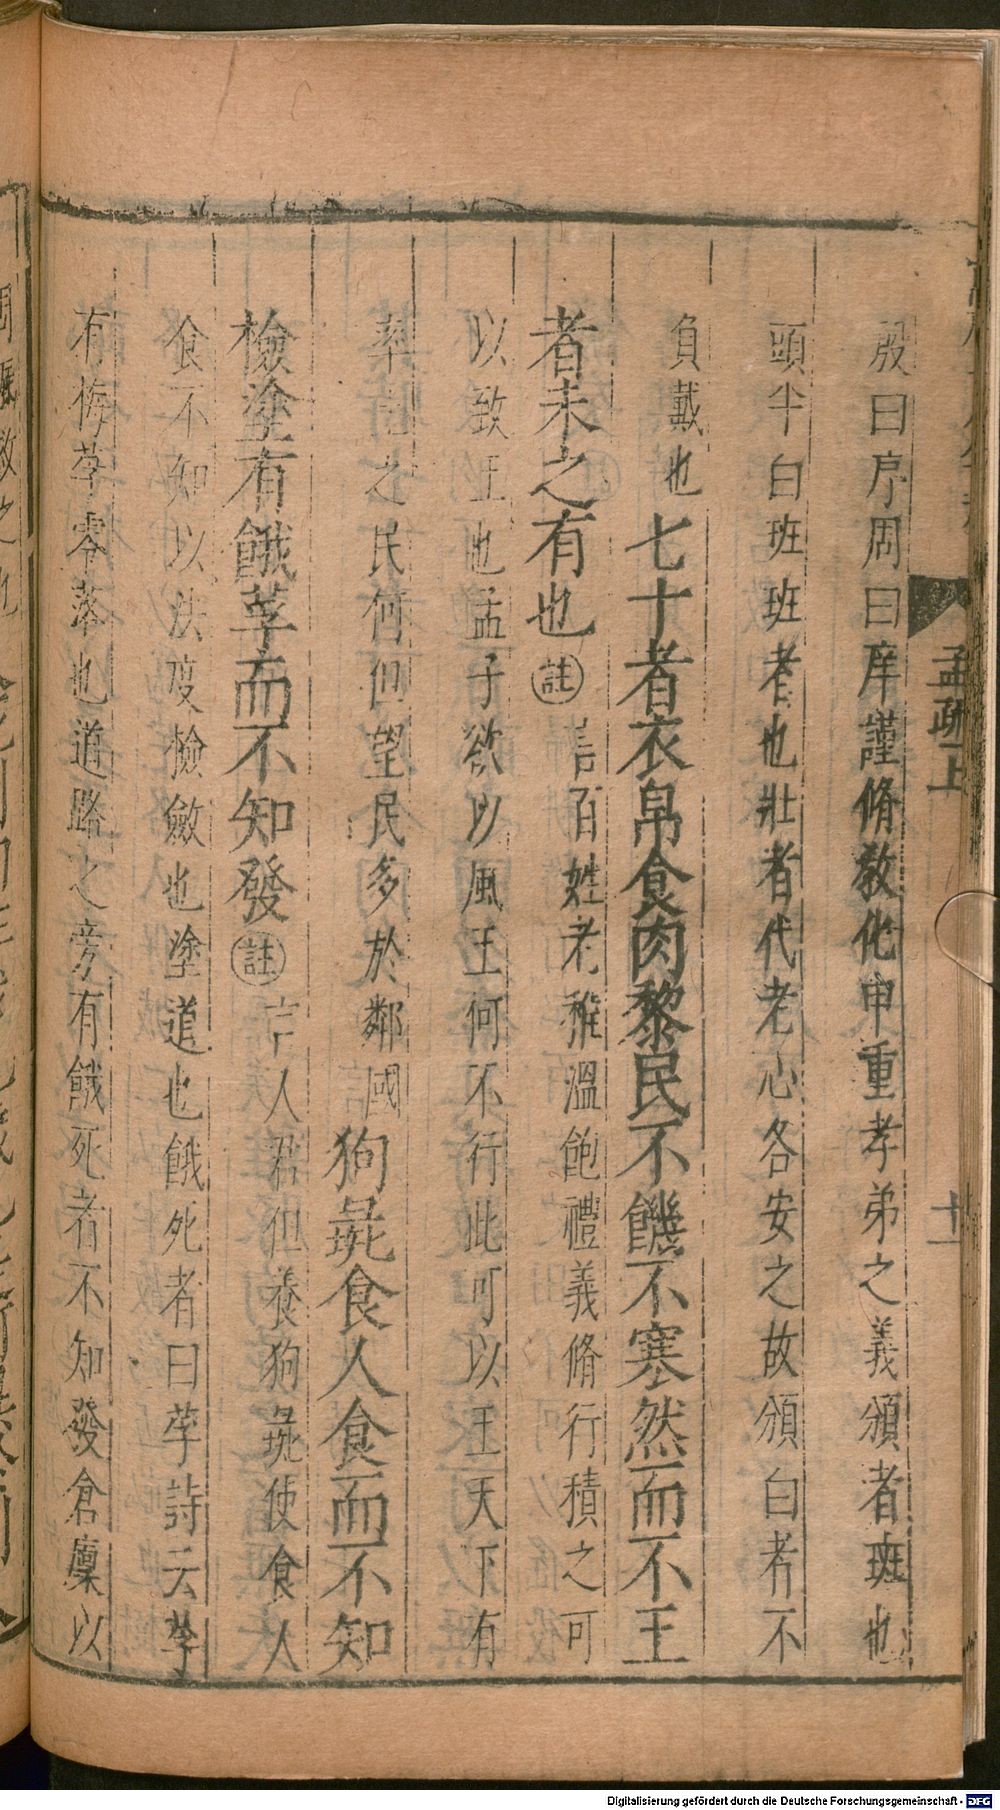 殷曰序周曰庠謹脩教化申重孝弟之義頒者班也
頭半白班班者也壯者代老心各安之故頒白者不
負戴也七十者衣帛食肉黎民不饑不寒然而不王
者未之有也註言百姓老稚溫飽禮義脩行積之可
以致王也孟子欲以風王何不行此可以王天下有
率土之民何但望民多於鄰國狗彘食人食而不知
檢塗有餓莩而不知發註言人君但養狗彘使食人
食不知以法度檢斂也塗道也餓死者曰莩詩云莩
有梅莩零落也道路之旁有餓死者不知發倉廩以
孟疏上
十一
Digitalisierung gefördert durch die Deutsche Forschungsgemeinschaft - DFG